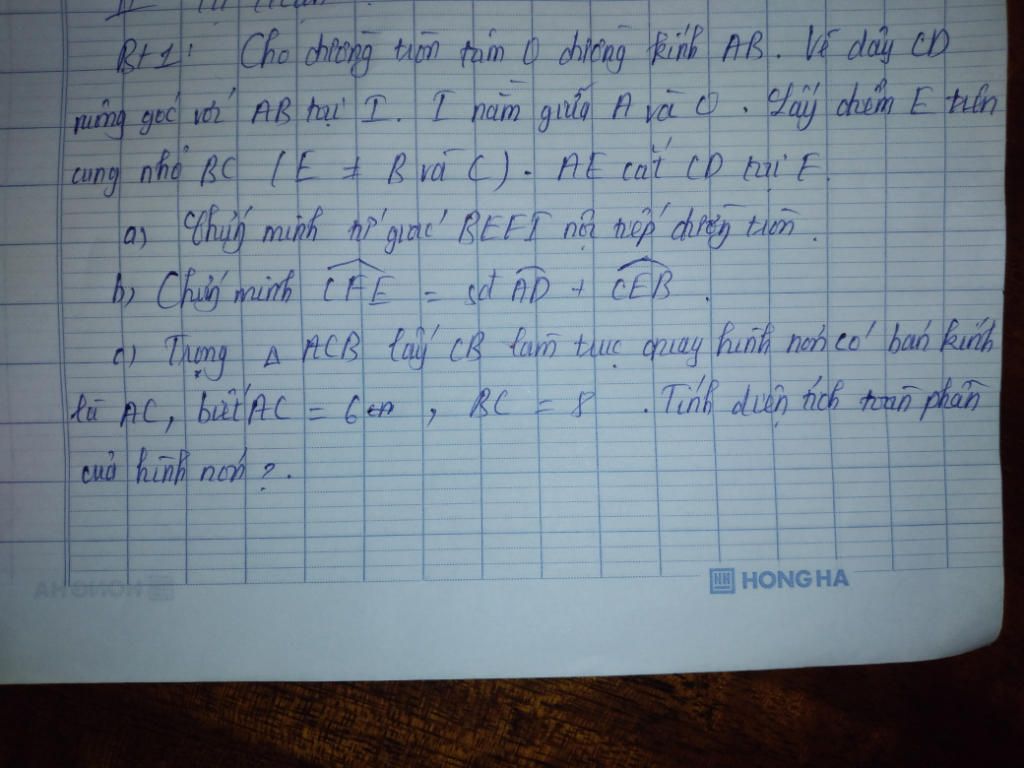 II Tự luận
BT1: Cho đường tròn tâm O đường kính AB. Vẽ dây CD
vuông góc với AB tại I. I nằm giữa A và O. Lấy điểm E trên
cung nhỏ BC (E ≠ B và C). AE cắt CD tại F.
a) Chứng minh tứ giác BEFI nội tiếp đường tròn.
b) Chứng minh CFE = sđ AD + CEB.
c) Trong Δ ACB lấy CB làm trục quay hình nón có bán kính
là AC, biết AC = 6cm, BC = 8. Tính diện tích toàn phần
của hình nón?.
HONG HA
HONG HA